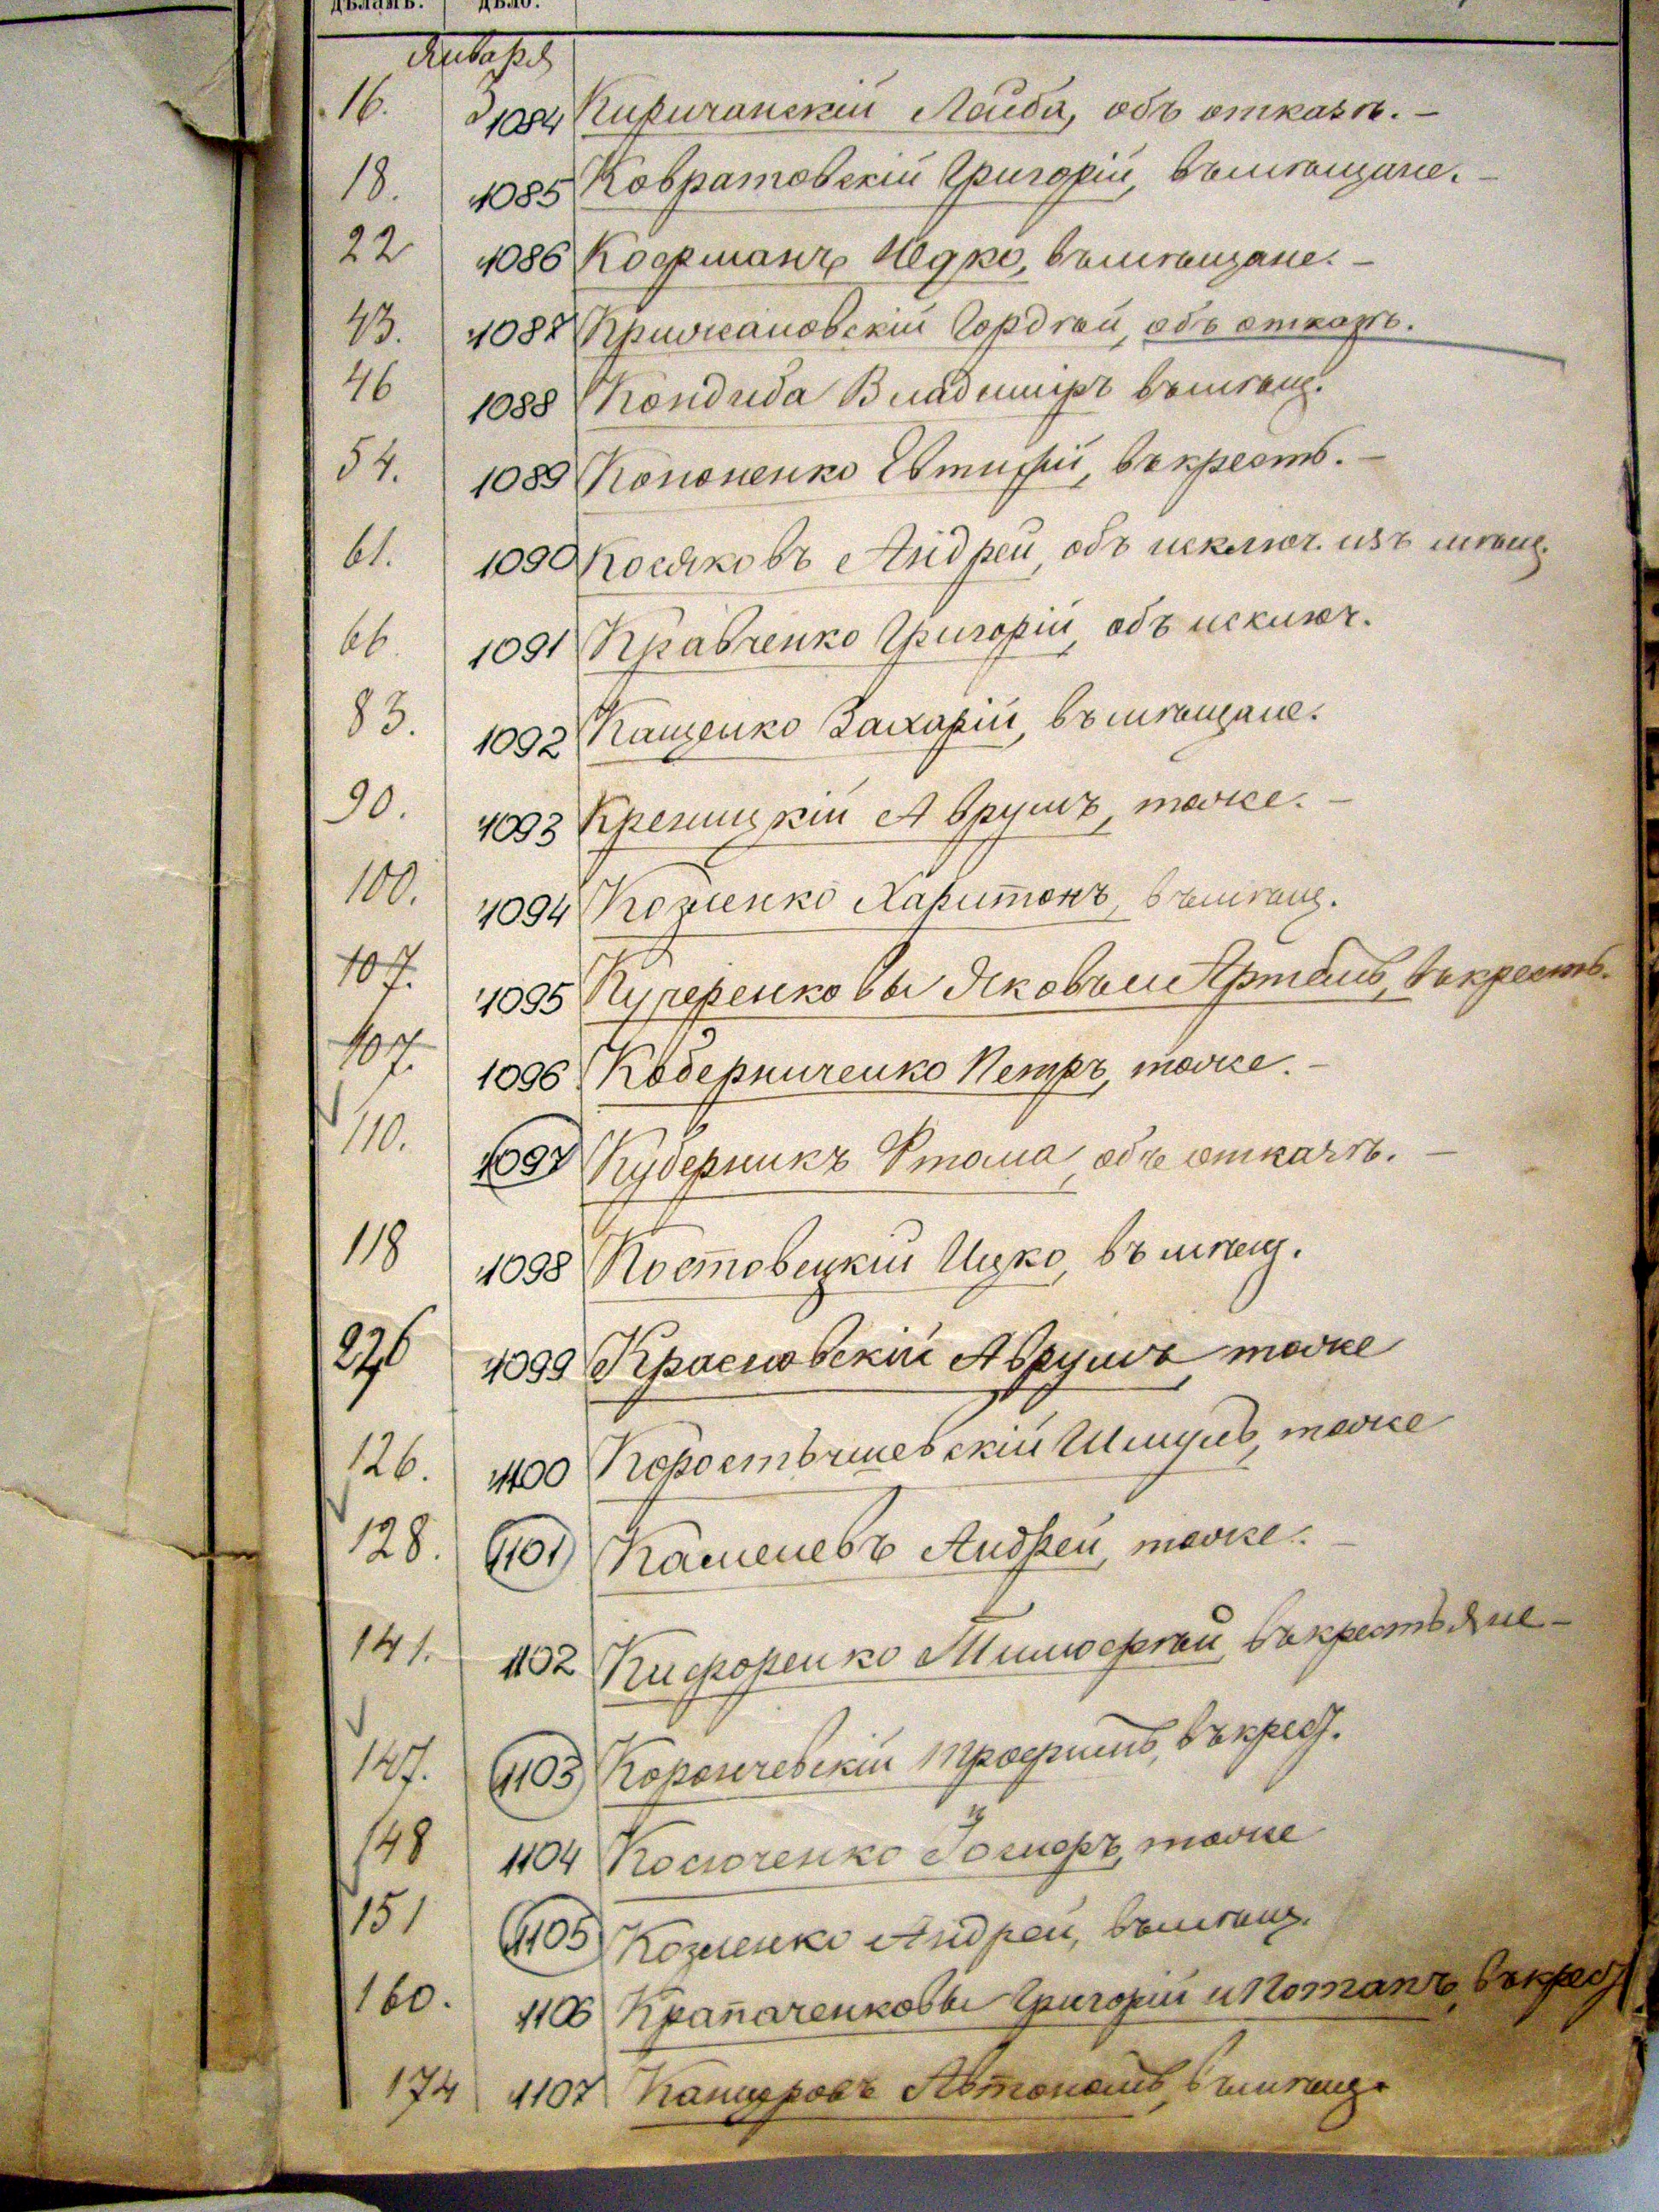 дѣламъ. дѣло.
Января
16. 3 1084 Киричанскій Лейба, объ отказѣ. –
18. 1085 Ковратовскій Григорій, въ мѣщане. –
22 1086 Кофманъ Шедко, въ мѣщане. –
43. 1087 Крижановскій Гордѣй, объ отказѣ.
46 1088 Кондиба Владиміръ въ мѣщ.
54. 1089 Кононенко Евтифій, въ кресть. –
61. 1090 Косяковъ Андрей, объ исключ. изъ мѣщ.
66. 1091 Кравченко Григорій, объ исключ.
83. 1092 Кащенко Захарій, въ мѣщане.
90. 1093 Креницкій Аврумъ, тоже. –
100. 1094 Козленко Харитонъ, въ мѣщ.
107. 1095 Кучеренковы Яковъ и Артемъ, въ крестъ.
107. 1096 Коберниченко Петръ, тоже. –
110. 1097 Куберникъ Фтома, объ отказѣ. –
118 1098 Костовецкій Ицко, въ мѣщ.
226 1099 Красновскій Аврумъ, тоже
126. 1100 Коростышевскій Шмуль, тоже
128. 1101 Каменевъ Андрей, тоже. –
141. 1102 Кифоренко Тимофѣй, въ крестьяне –
147. 1103 Корончевскій Трофимъ, въ крест.
148 1104 Косюченко Іосифъ, тоже
151 1105 Козленко Андрей, въ мѣщ.
160. 1106 Крапаченковы Григорій и Потапъ, въ крест
174 1107 Автономъ, въ мѣщ.